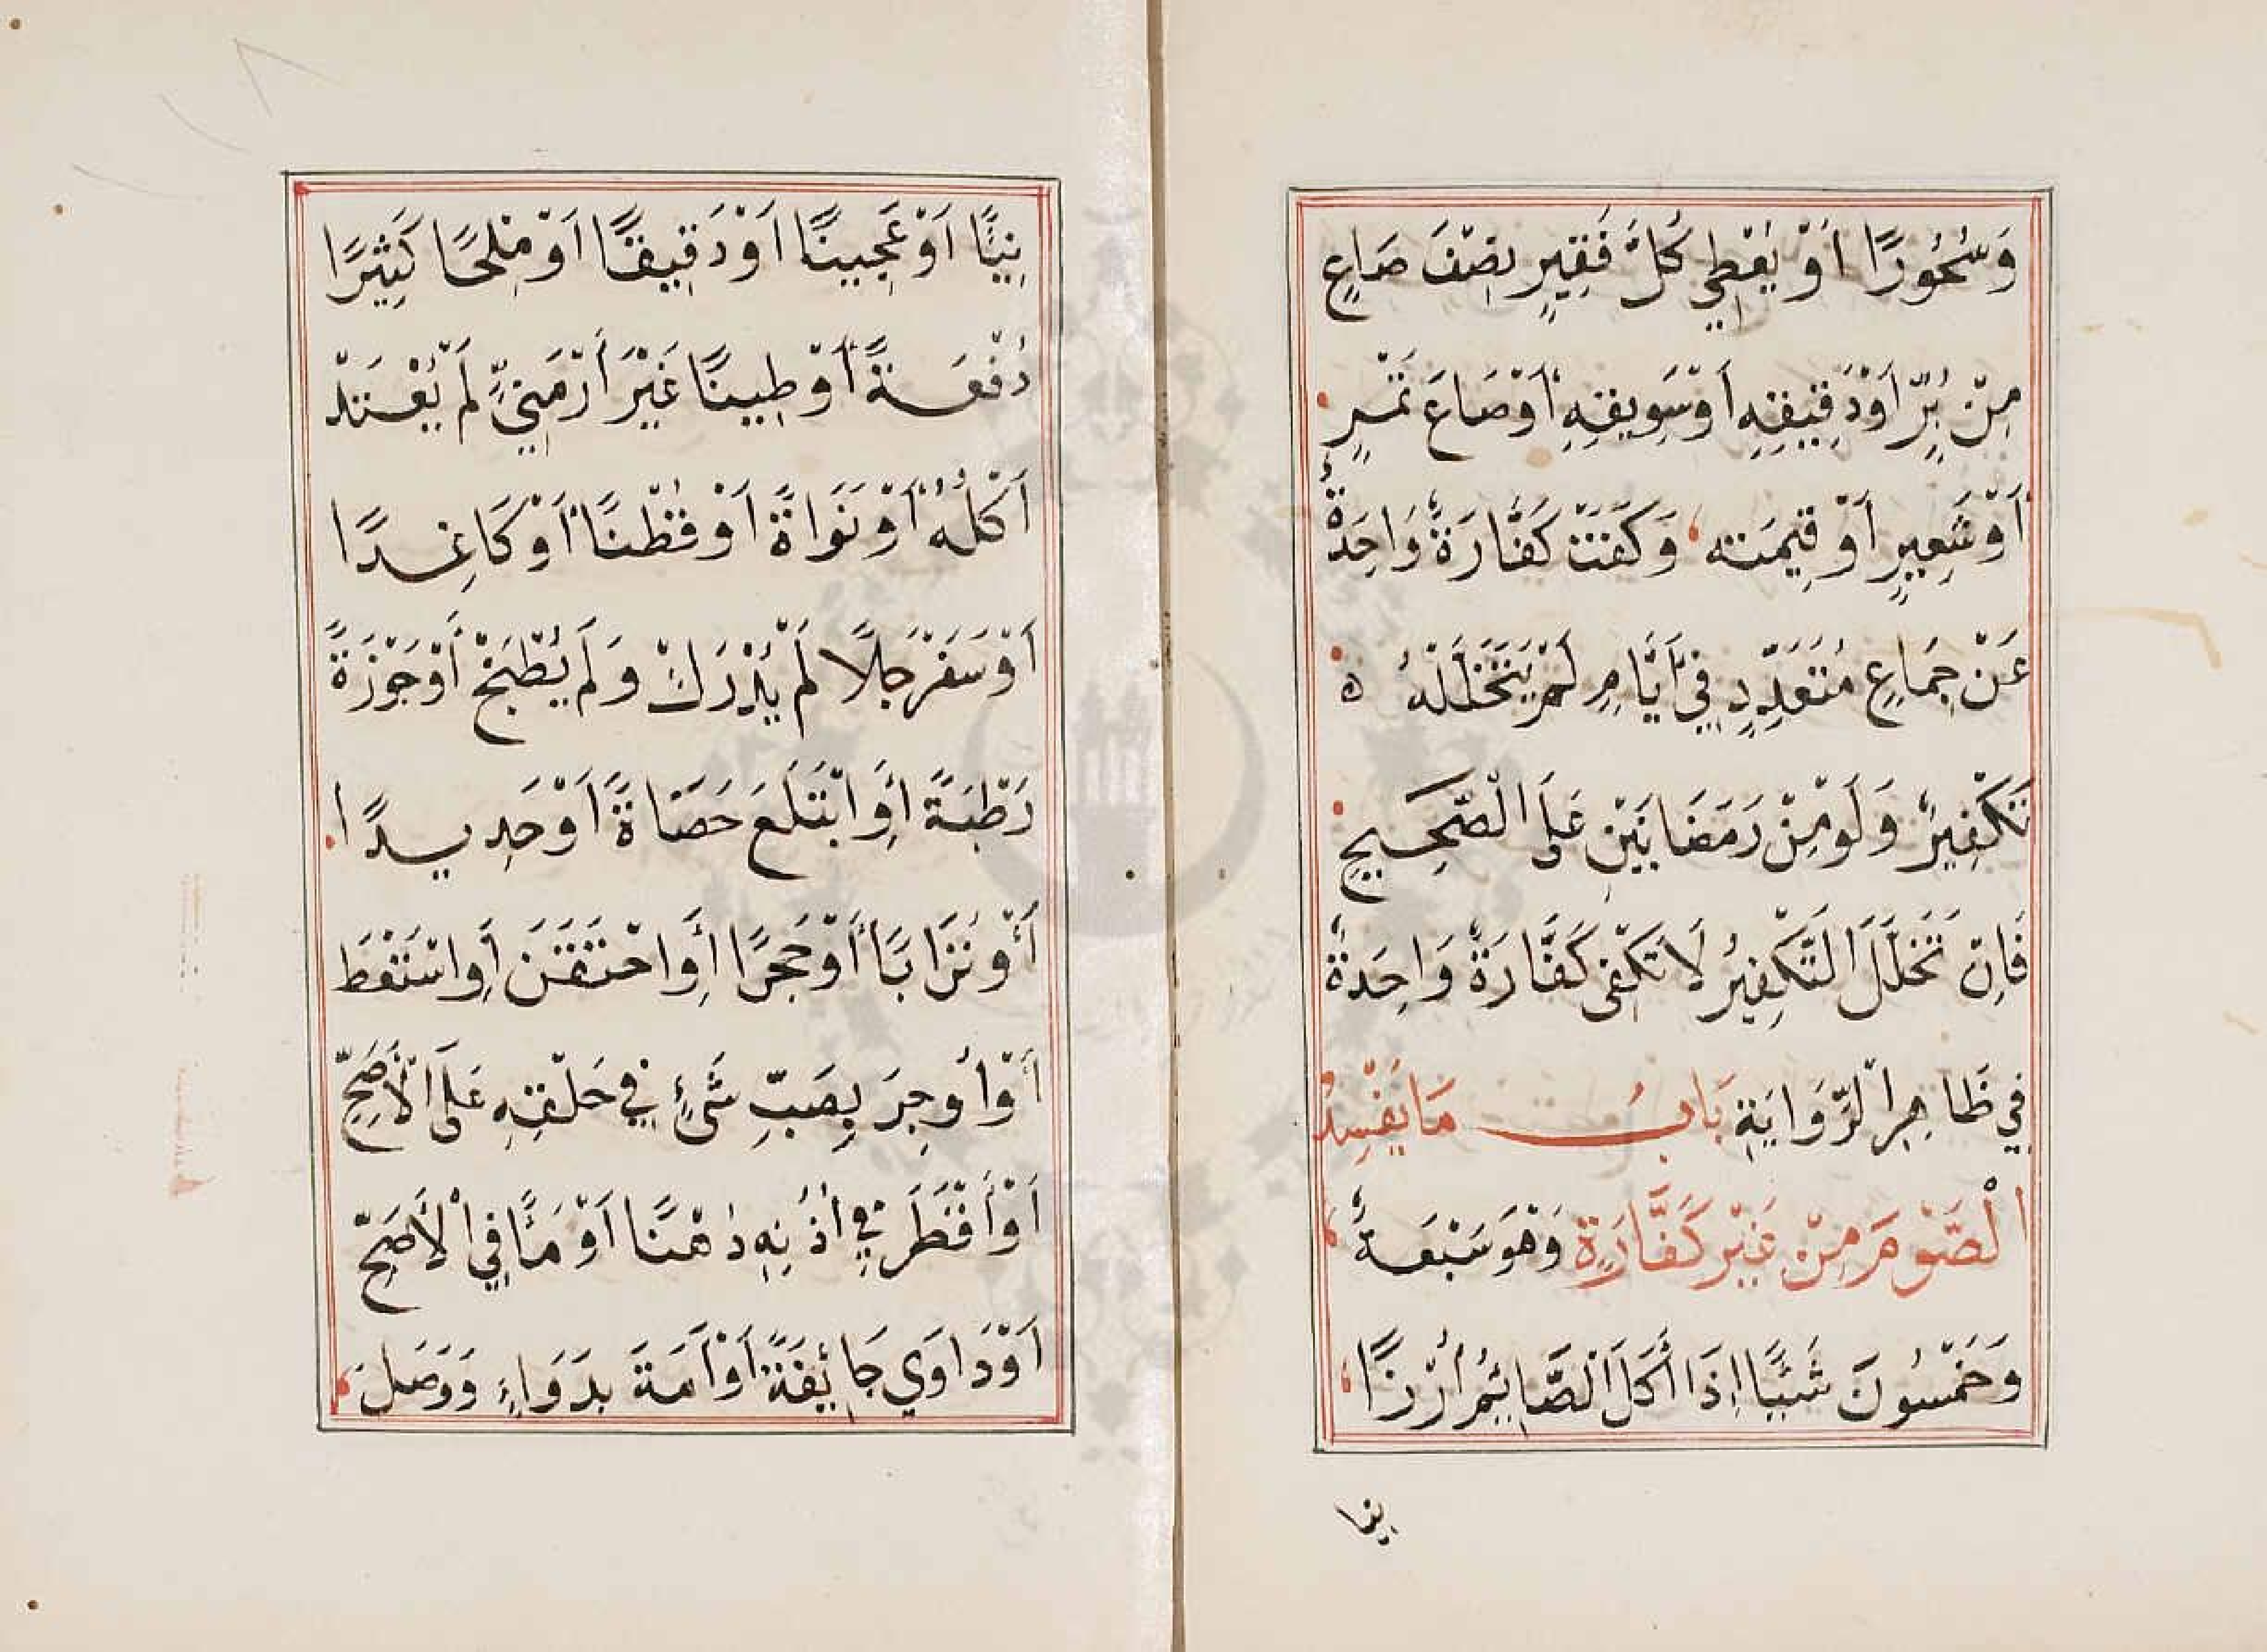 وَسُحُورًا أَوْ يُعْطِي كُلَّ فَقِيرٍ نِصْفَ صَاعٍ
مِنْ بُرٍّ أَوْ دَقِيقِهِ أَوْ سَوِيقِهِ أَوْ صَاعَ تَمْرٍ
أَوْ شَعِيرٍ أَوْ قِيمَتَه وَكَفَتْ كَفَّارَةٌ وَاحِدَةٌ
عَنْ جِمَاعٍ مُتَعَدِّدٍ فِي أَيَّامٍ لَمْ يَتَخَلَّلْهُ
تَكْفِيرٌ وَلَوْ مِنْ رَمَضَانَيْنِ عَلَى الْصَّحِيحِ
فَاِنْ تَخَلَّلَ الْتَّكْفِيرُ لَا تَكْفِى كَفَّارَةٌ وَاحِدَةٌ
فِي ظَاهِرِ الْرِّوَايَةِ بَابُ مَا يُفْسِدُ
الْصَّوْمَ مِنْ غَيْرِ كَفَّارَةٍ وَهُوَ سَبْعَةٌ
وَخَمْسُونَ شَيْئًا اِذَا أَكَلَ الْصَّائِمُ أَرُزًّا
نِيًّا
نِيًّا أَوْ عَجِينًا أَوْ دَقِيقًا أَوْ مِلْحًا كَثِيرًا
دُفْعَةً أَوْ طِينًا غَيْرَ أَرْمَنِيٍّ لَمْ يُعْتَدْ
أَكْلُهُ أَوْ نَوَاةً أَوْ قُطْنًا أَوْ كَاغِدًا
أَوْ سَفَرْجَلًا لَمْ يُدْرَكْ وَلَمْ يُطْبَخْ أَوْ جَوْزَةً
رَطْبَةً أَوِ ابْتَلَعَ حَصَاةً أَوْ حَدِيدًا
أَوْ تُرَابًا أَوْ حَجَرًا أَوِ احْتَقَنَ أَوِ اسْتَعَطَ
أَوْ أُوجِرَ بِصَبِّ شَيْءٍ فِي حَلْقِهِ عَلَى الْأَصَحِّ
أَوْ أَقْطَرَ فِي أُذُنِهِ دُهْنًا أَوْ مَاءً فِي الْأَصَحِّ
أَوْ دَاوَي جَائِفَةً أَوْ آمَّةً بِدَوَاءٍ وَوَصَلَ